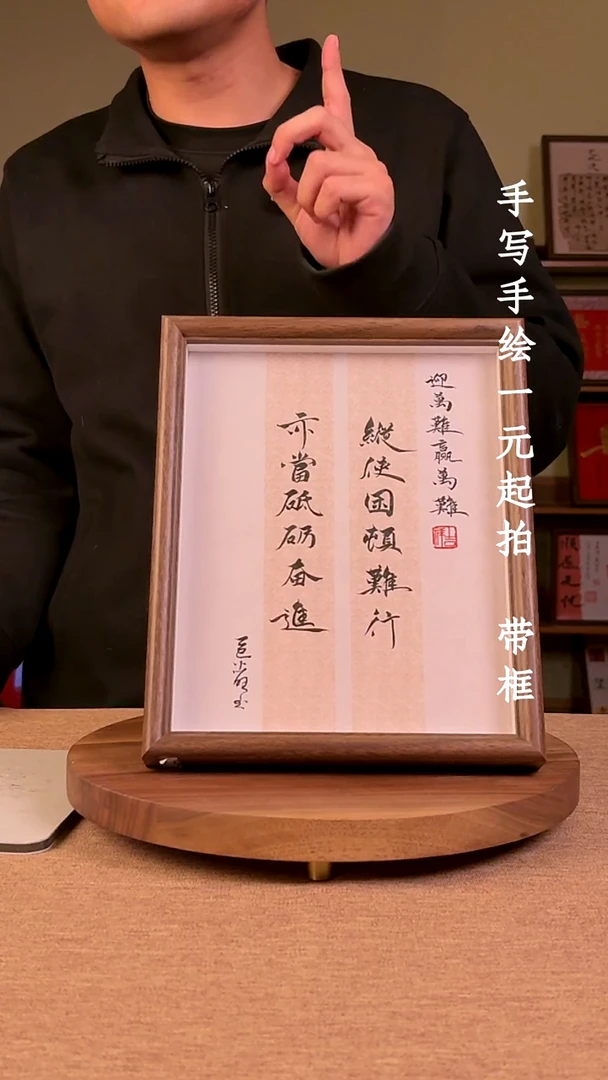 迎萬難贏萬難
縱使困頓難行
亦當砥砺奋進
手写手绘一元起拍 带框